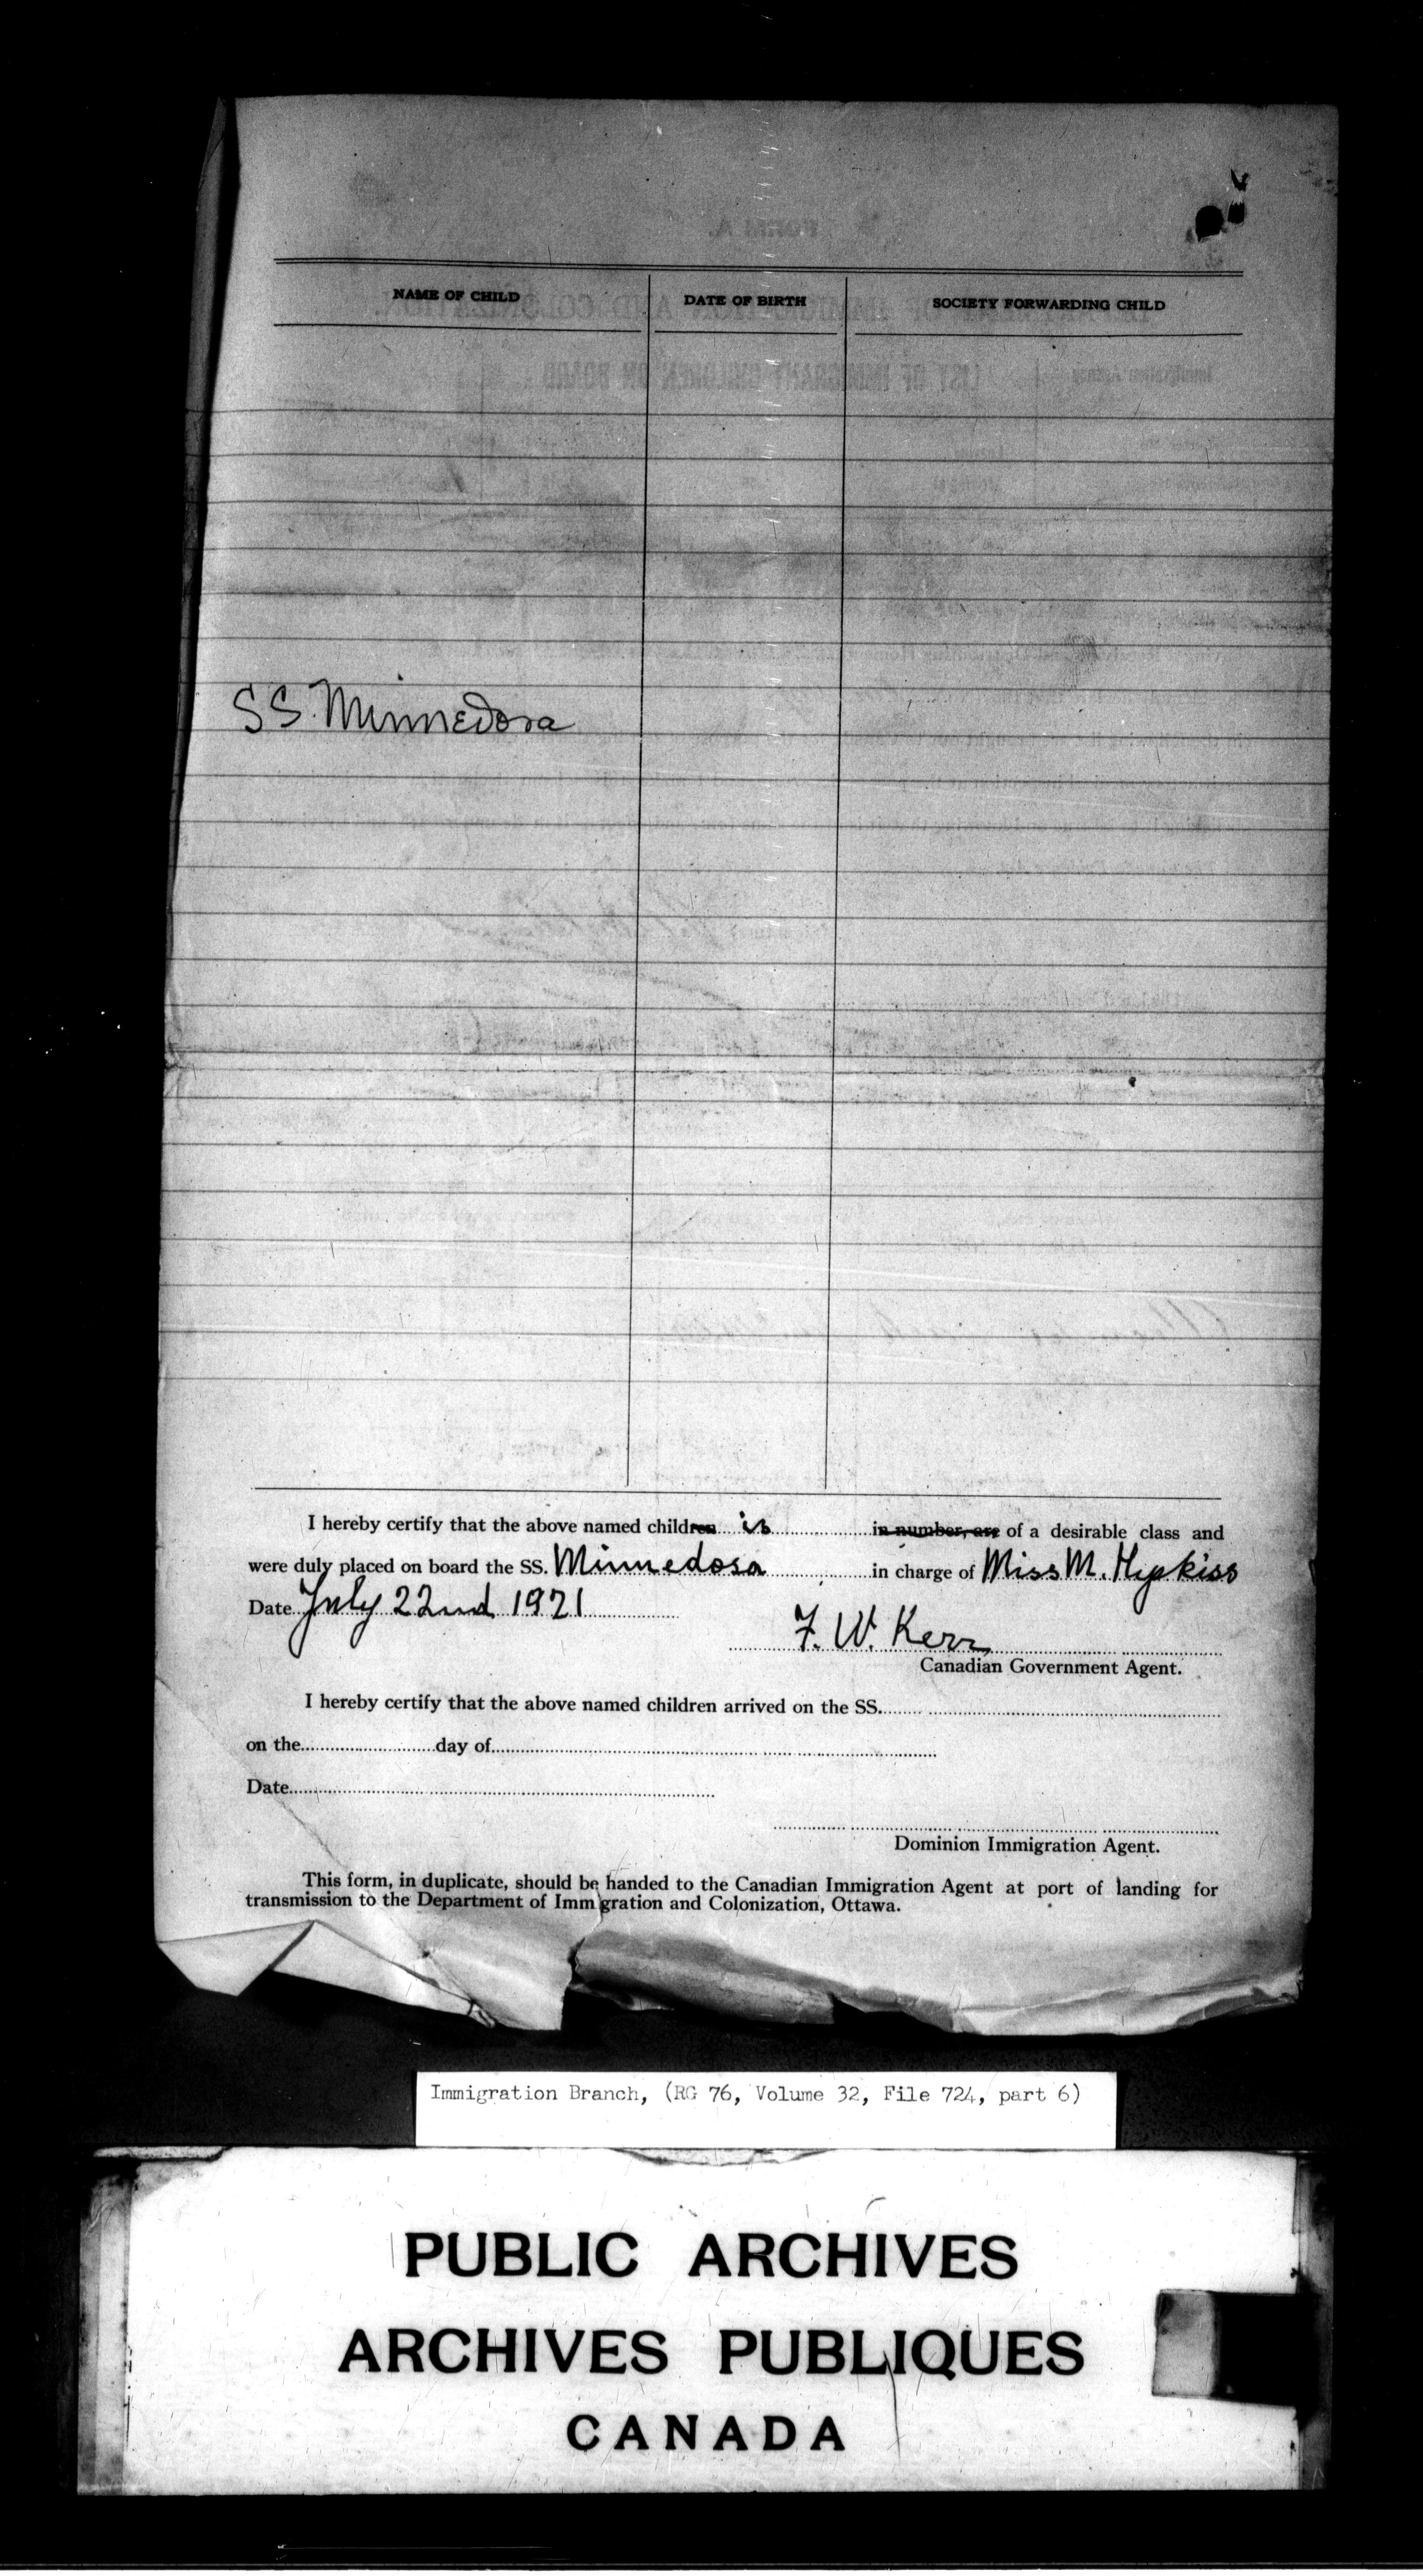 NAME OF CHILD DATE OF BIRTH SOCIETY FORWARDING CHILD
SS. Minnedosa
I hereby certify that the above named children is in number, are of a desirable class and
were duly placed on board the SS. Minnedosa in charge of Miss M. Hipkiss
Date July 22nd 1921
F. W. Kerr
Canadian Government Agent.
I hereby certify that the above named children arrived on the SS.
on the day of
Date
Dominion Immigration Agent.
This form, in duplicate, should be handed to the Canadian Immigration Agent at port of landing for
transmission to the Department of Immigration and Colonization, Ottawa.
Immigration Branch, (RG 76, Volume 32, File 724, part 6)
PUBLIC ARCHIVES
ARCHIVES PUBLIQUES
CANADA